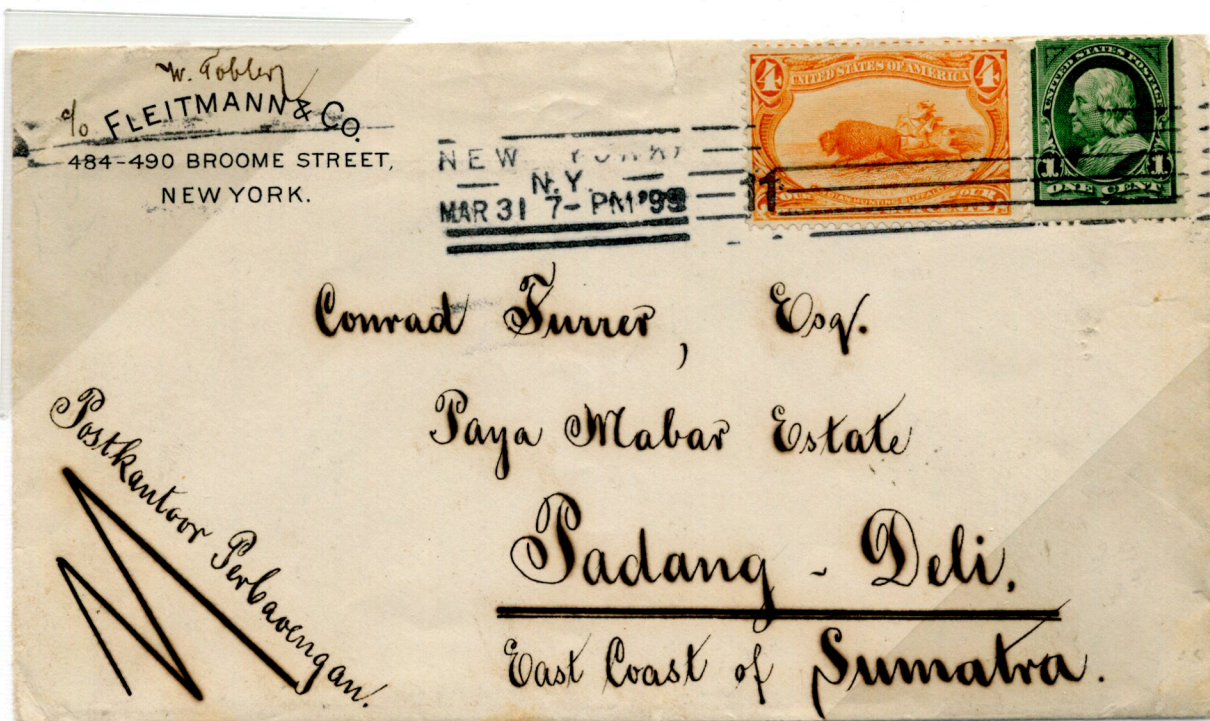 W. Tobler
c/o FLEITMANN & CO.
484-490 BROOME STREET,
NEW YORK.
NEW YORK,
N.Y.
MAR 31 7-PM '99
11
4 4
UNITED STATES OF AMERICA
UNITED STATES POSTAGE
1 1
ONE CENT
Conrad Furrer, Esq.
Paya Mabar Estate
Padang - Deli,
East Coast of Sumatra.
Postkantoor Perbaoengan.